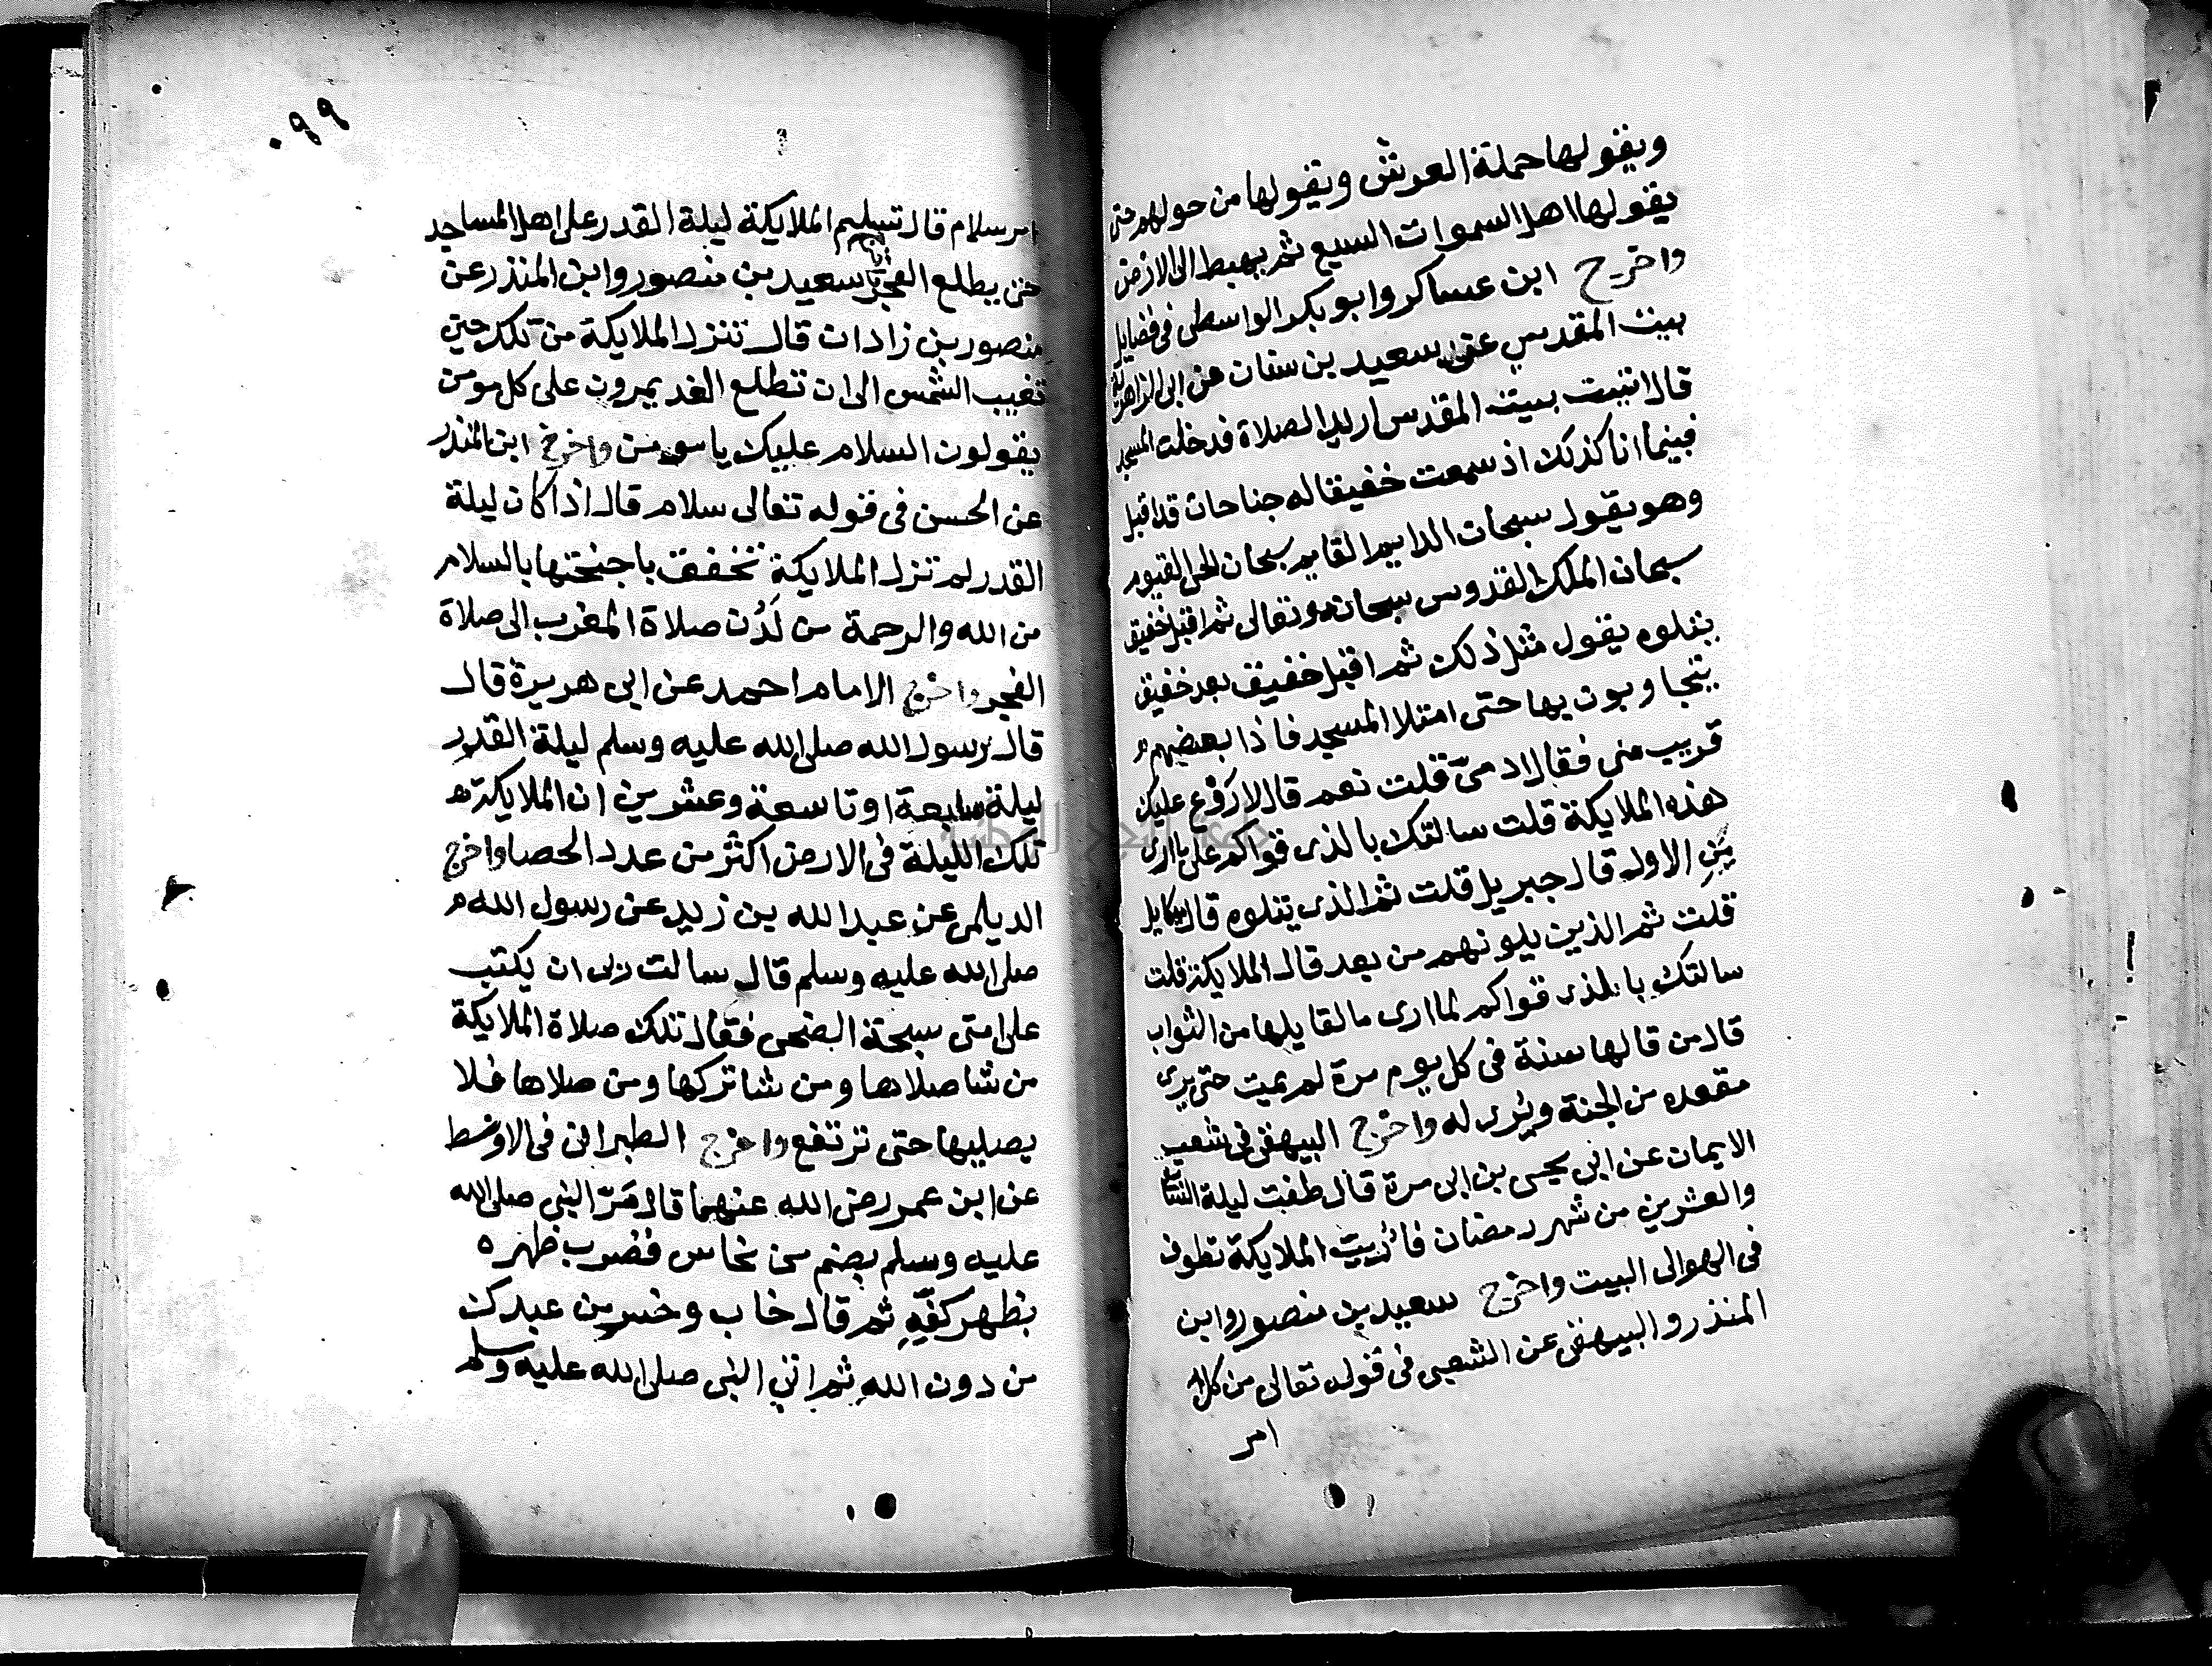 ويقولها حملة العرش ويقولها من حولهم حتى
يقولها اهل السموات السبع ثم يهبط الى الارض
واخرج ابن عساكر وابو بكر الواسطي في فضايل
بيت المقدس عن سعيد بن سنان عن ابي الزاهرية
قال اتيت بيت المقدس اريد الصلاة فدخلت المسجد
فبينما انا كذلك اذ سمعت خفيقا له جناحان قد اقبل
وهو يقول سبحان الدايم القايم سبحان الحي القيوم
سبحان الملك القدوس سبحانه وتعالى ثم اقبل خفيق
يتلوه يقول مثل ذلك ثم اقبل خفيق بعد خفيق
يتجاوبون بها حتى امتلا المسجد فاذا بعضهم
قريب مني فقال ادمي قلت نعم قال لا روع عليك
هذه الملايكة قلت سالتك بالذي قواكم على ما ارى
من الاول قال جبريل قلت ثم الذي يتلوه قال ميكايل
قلت ثم الذين يلونهم من بعد قال الملايكة قلت
سالتك بالذي قواكم لما ارى ما لقايلها من الثواب
قال من قالها سنة في كل يوم مرة لم يمت حتى يرى
مقعده من الجنة ويرى له واخرج البيهقي في شعب
الايمان عن ابي يحيى بن ابي مرة قال طفت ليلة السابع
والعشرين من شهر رمضان فاريت الملايكة تطوف
في الهوا الى البيت واخرج سعيد بن منصور وابن
المنذر والبيهقي عن الشعبي في قوله تعالى من كل
امر
٠٩٩
امر سلام قال تسليم الملايكة ليلة القدر على اهل المساجد
حتى يطلع الفجر سعيد بن منصور وابن المنذر عن
منصور بن زادان قال تنزل الملايكة من تلك حين
تغيب الشمس الى ان تطلع الغد يمرون على كل مومن
يقولون السلام عليك يا مومن واخرج ابن المنذر
عن الحسن في قوله تعالى سلام قال اذا كان ليلة
القدر لم تزل الملايكة تخفق باجنحتها بالسلام
من الله والرحمة من لدن صلاة المغرب الى صلاة
الفجر واخرج الامام احمد عن ابي هريرة قال
قال رسول الله صلى الله عليه وسلم ليلة القدر
ليلة سابعة او تاسعة وعشرين ان الملايكة
تلك الليلة في الارض اكثر من عدد الحصا واخرج
الديلمي عن عبد الله بن زيد عن رسول الله
صلى الله عليه وسلم قال سالت ربي ان يكتب
على امتي سبحة الضحى فقال تلك صلاة الملايكة
من شا صلاها ومن شا تركها ومن صلاها فلا
يصليها حتى ترتفع واخرج الطبراني في الاوسط
عن ابن عمر رضي الله عنهما قال مر النبي صلى الله
عليه وسلم بصنم من نحاس فضرب ظهره
بظهر كفه ثم قال خاب وخسر من عبدك
من دون الله ثم اتى النبي صلى الله عليه وسلم